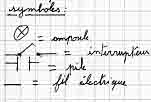 symboles:
= ampoule
= interrupteur
= pile
= fil électrique